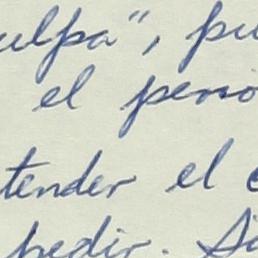 ulpa", pu
el perso
tender el e
pedir. Si